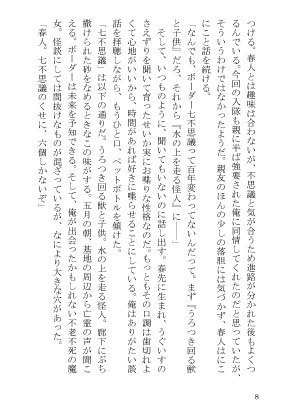 つける。春人とは趣味は合わないが、不思議と気が合うため進路が分かれた後もよくつ
るんでいる。今回の入隊も親に半ば強要された俺に同情してくれたのだと思っていたが、
そういうわけではなかったようだ。親友のほんの少しの落胆には気づかず、春人はにこ
にこと話を続ける。
「なんでも、ボーダー七不思議って百年変わってないんだって。まず『うろつき回る獣
と子供』だろ、それから『水の上を走る怪人』に――」
そして、いつものように、聞いてもいないのに話し出す。春先に生まれ、うぐいすの
さえずりを聞いて育ったせいか実にお喋りな性格なのだ。もっともその口調は歯切れよ
く心地がいいから、時間があれば好きに喋らせることにしている。俺はありがたい談
話を拝聴しながら、もうひと口、ペットボトルを傾けた。
「七不思議」は以下の通りだ。うろつき回る獣と子供。水の上を走る怪人。廊下にぶち
撒けられた砂をなめるときなこの味がする。五月の朝、基地の周辺から亡霊の声が聞こ
える。ボーダーは未来を予知できる。そして、俺が出会ったかもしれない不老不死の魔
女。怪談にしては間抜けなものが混ざっているが、なにより大きな穴があった。
「春人。七不思議のくせに、六個しかないぞ」
8